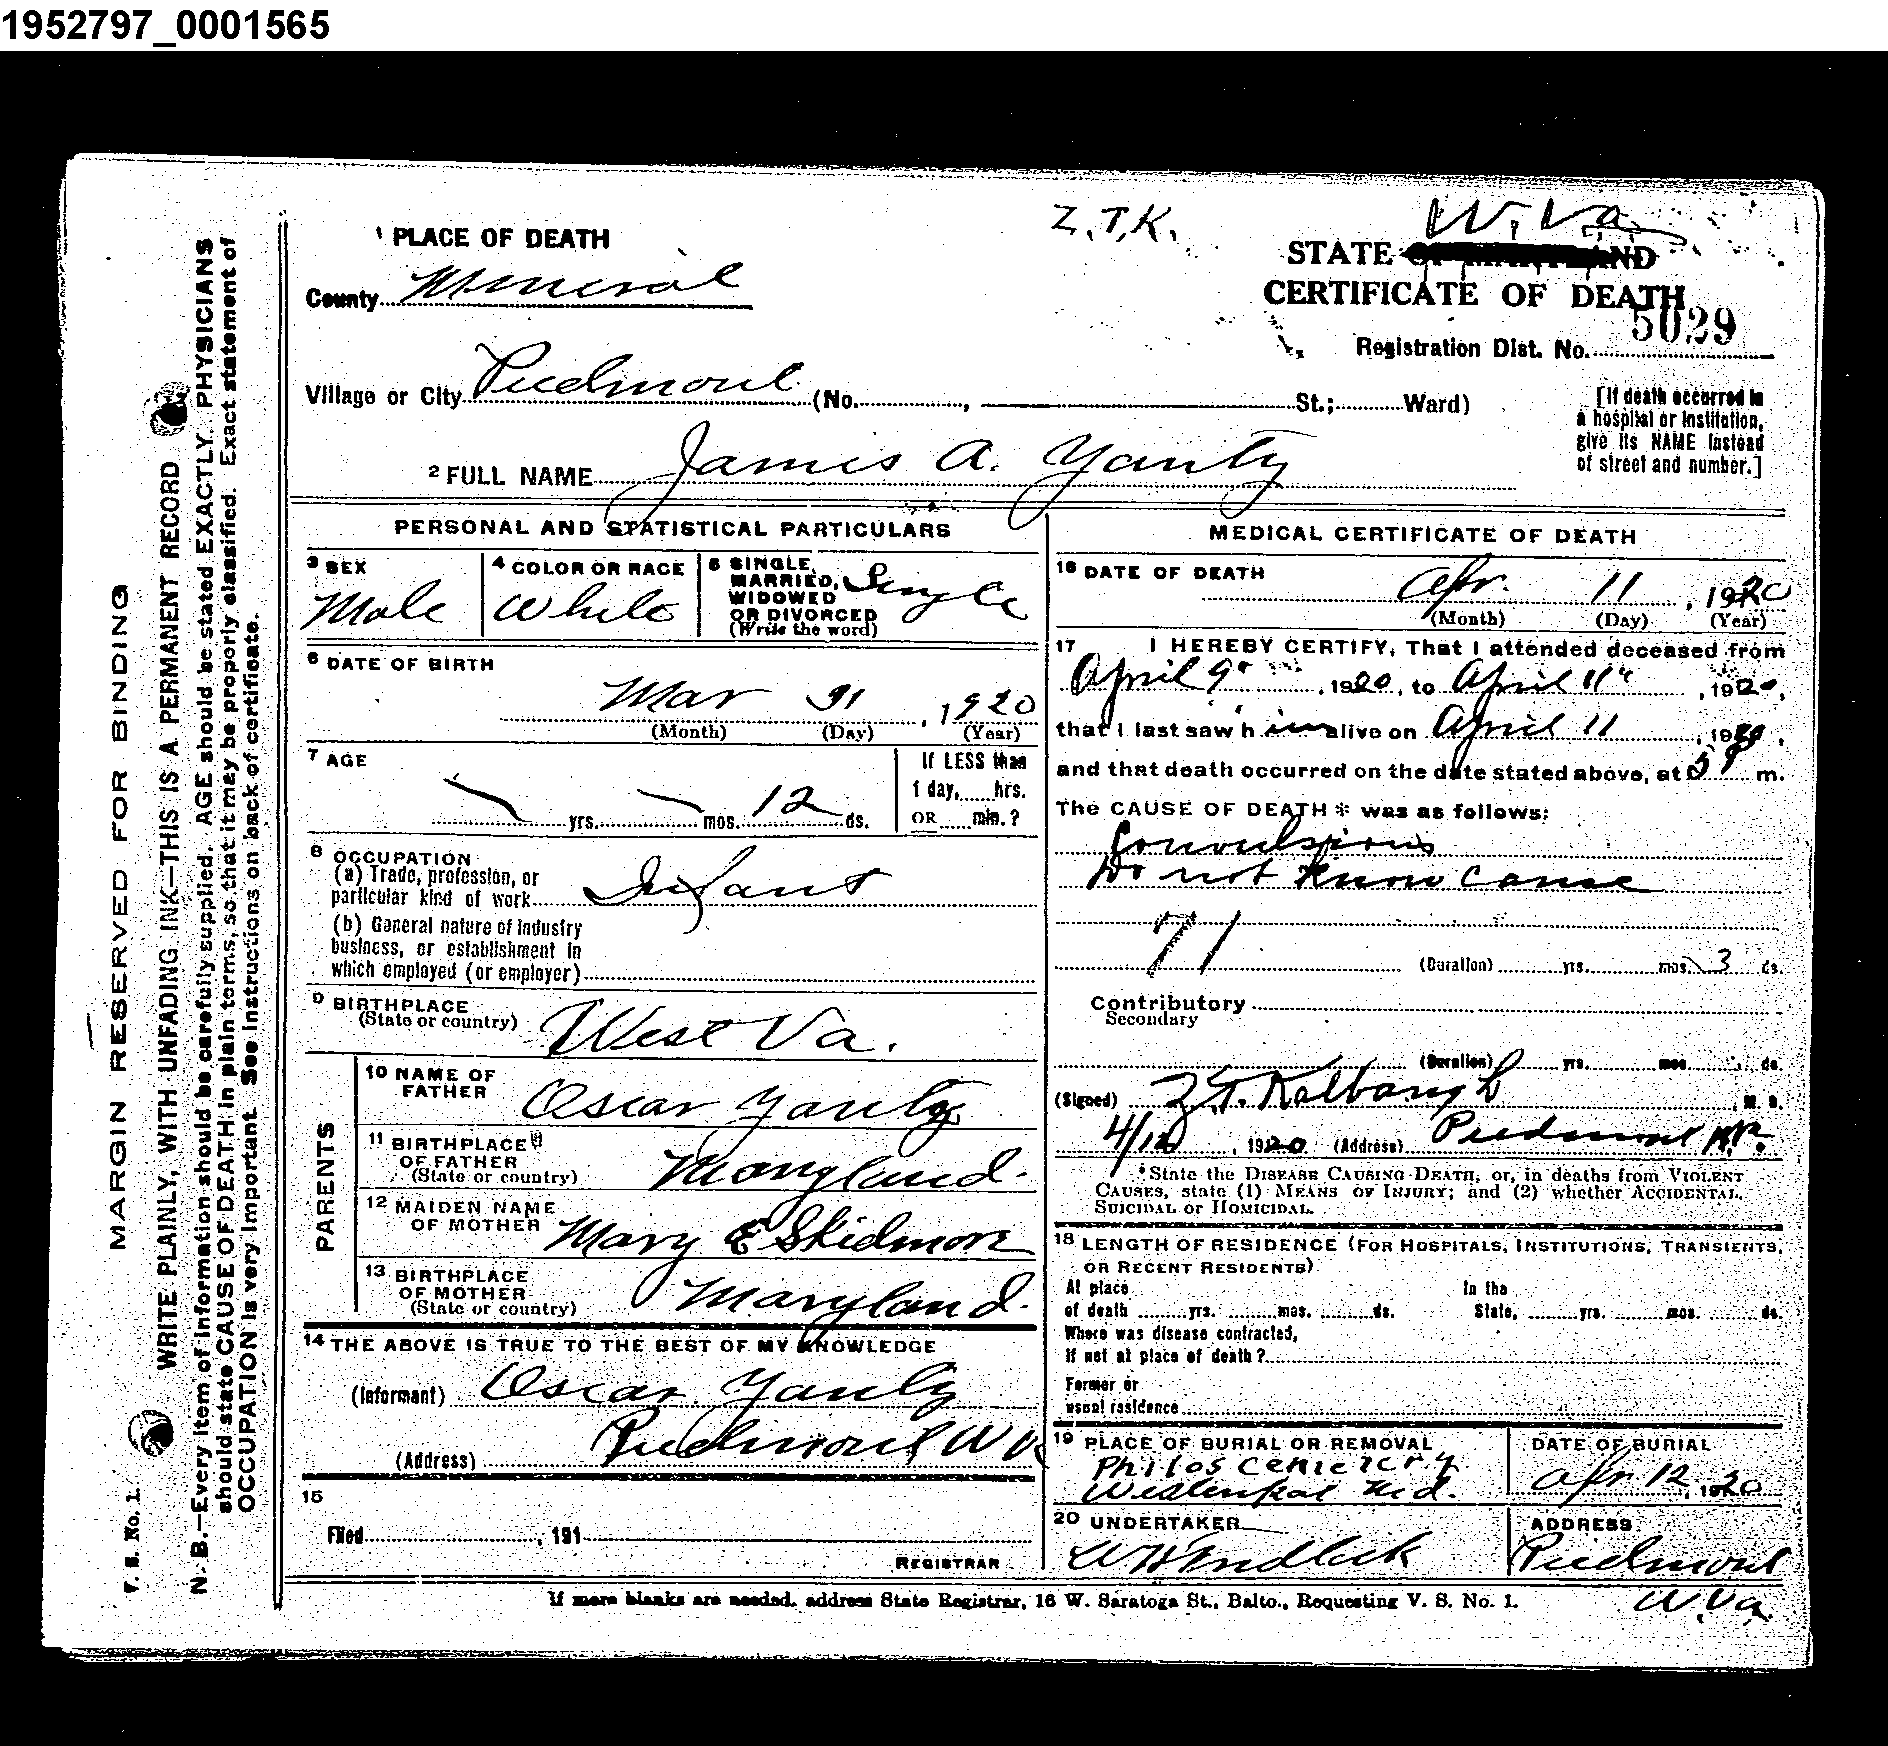 1952797_0001565
Z.T.K.
W.Va.
1 PLACE OF DEATH
County Mineral
STATE OF MARYLAND
CERTIFICATE OF DEATH
5029
Registration Dist. No.
Village or City Piedmont (No. , St.; Ward)
[If death occurred in
a hospital or institution,
give its NAME instead
of street and number.]
2 FULL NAME James A. Yanty
PERSONAL AND STATISTICAL PARTICULARS
3 SEX
Male
4 COLOR OR RACE
White
5 SINGLE,
MARRIED,
WIDOWED
OR DIVORCED
(Write the word)
Single
6 DATE OF BIRTH
Mar 31, 1920
(Month) (Day) (Year)
7 AGE
yrs. mos. 12 ds.
If LESS than
1 day, hrs.
OR min.?
8 OCCUPATION
(a) Trade, profession, or
particular kind of work Infant
(b) General nature of industry
business, or establishment in
which employed (or employer)
9 BIRTHPLACE
(State or country) West Va.
PARENTS
10 NAME OF
FATHER Oscar Yanty
11 BIRTHPLACE
OF FATHER
(State or country) Maryland.
12 MAIDEN NAME
OF MOTHER Mary E Skidmore
13 BIRTHPLACE
OF MOTHER
(State or country) Maryland.
14 THE ABOVE IS TRUE TO THE BEST OF MY KNOWLEDGE
(Informant) Oscar Yanty
(Address) Piedmont W Va
15
Filed , 191
REGISTRAR
MEDICAL CERTIFICATE OF DEATH
16 DATE OF DEATH
Apr. 11, 1920
(Month) (Day) (Year)
17 I HEREBY CERTIFY, That I attended deceased from
April 9" , 1920, to April 11" , 1920,
that I last saw h im alive on April 11 , 1920,
and that death occurred on the date stated above, at 5 P m.
The CAUSE OF DEATH * was as follows:
Convulsions
Do not know cause
71
(Duration) yrs. mos. 3 ds.
Contributory
Secondary
(Duration) yrs. mos. ds.
(Signed) Z.T. Kalbaugh , M. D.
4/12 , 1920 (Address) Piedmont W.Va.
*State the DISEASE CAUSING DEATH, or, in deaths from VIOLENT
CAUSES, state (1) MEANS OF INJURY; and (2) whether ACCIDENTAL,
SUICIDAL or HOMICIDAL.
18 LENGTH OF RESIDENCE (FOR HOSPITALS, INSTITUTIONS, TRANSIENTS,
OR RECENT RESIDENTS)
At place
of death yrs. mos. ds.
In the
State, yrs. mos. ds.
Where was disease contracted,
If not at place of death?
Former or
usual residence
19 PLACE OF BURIAL OR REMOVAL
Philos Cemetery
Westernport Md.
DATE OF BURIAL
Apr 12, 1920
20 UNDERTAKER
ADDRESS
Piedmont
W.Va
If more blanks are needed, address State Registrar, 16 W. Saratoga St., Balto., Requesting V. S. No. 1.
MARGIN RESERVED FOR BINDING
WRITE PLAINLY, WITH UNFADING INK—THIS IS A PERMANENT RECORD
V. S. No. 1.
N. B.—Every item of information should be carefully supplied. AGE should be stated EXACTLY. PHYSICIANS
should state CAUSE OF DEATH in plain terms, so that it may be properly classified. Exact statement of
OCCUPATION is very important. See instructions on back of certificate.